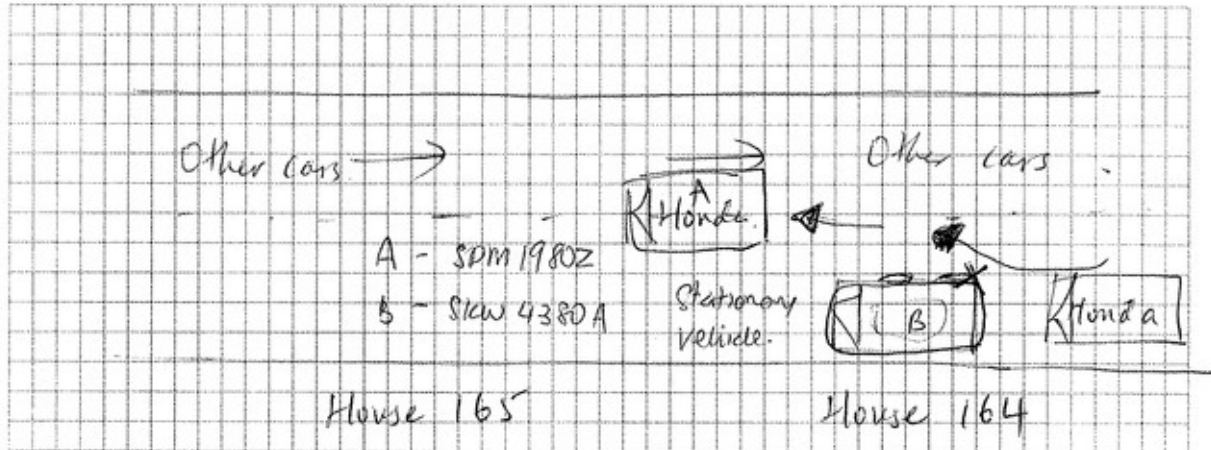 Other cars
Other cars
A
Honda
A - SDM 1980Z
B - SKW 4380A
Stationary
vehicle.
B
Honda
House 165
House 164